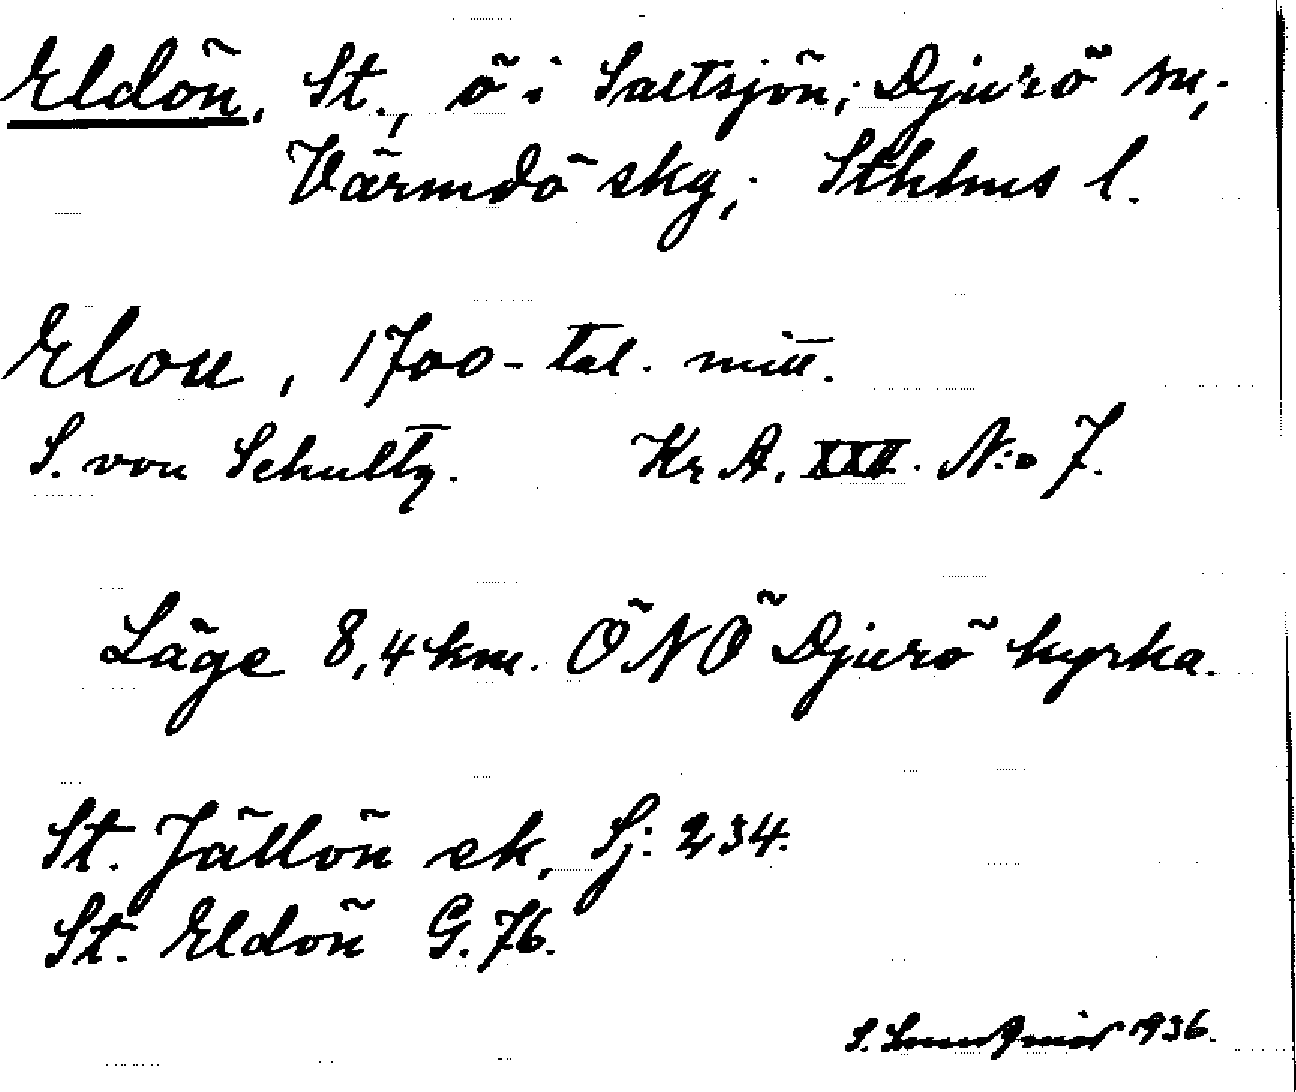 Eldön, St., ö i Saltsjön; Djurö sn;
Värmdö skg; Sthlms l.
Elon, 1700-tal. mitt.
S. von Schultz. Kr A. XXII. N:o 7.
Läge 8,4 km. ÖNÖ Djurö kyrka.
St. Jällön ek, Sj: 234.
St. Eldön G. 76.
S. 1936.